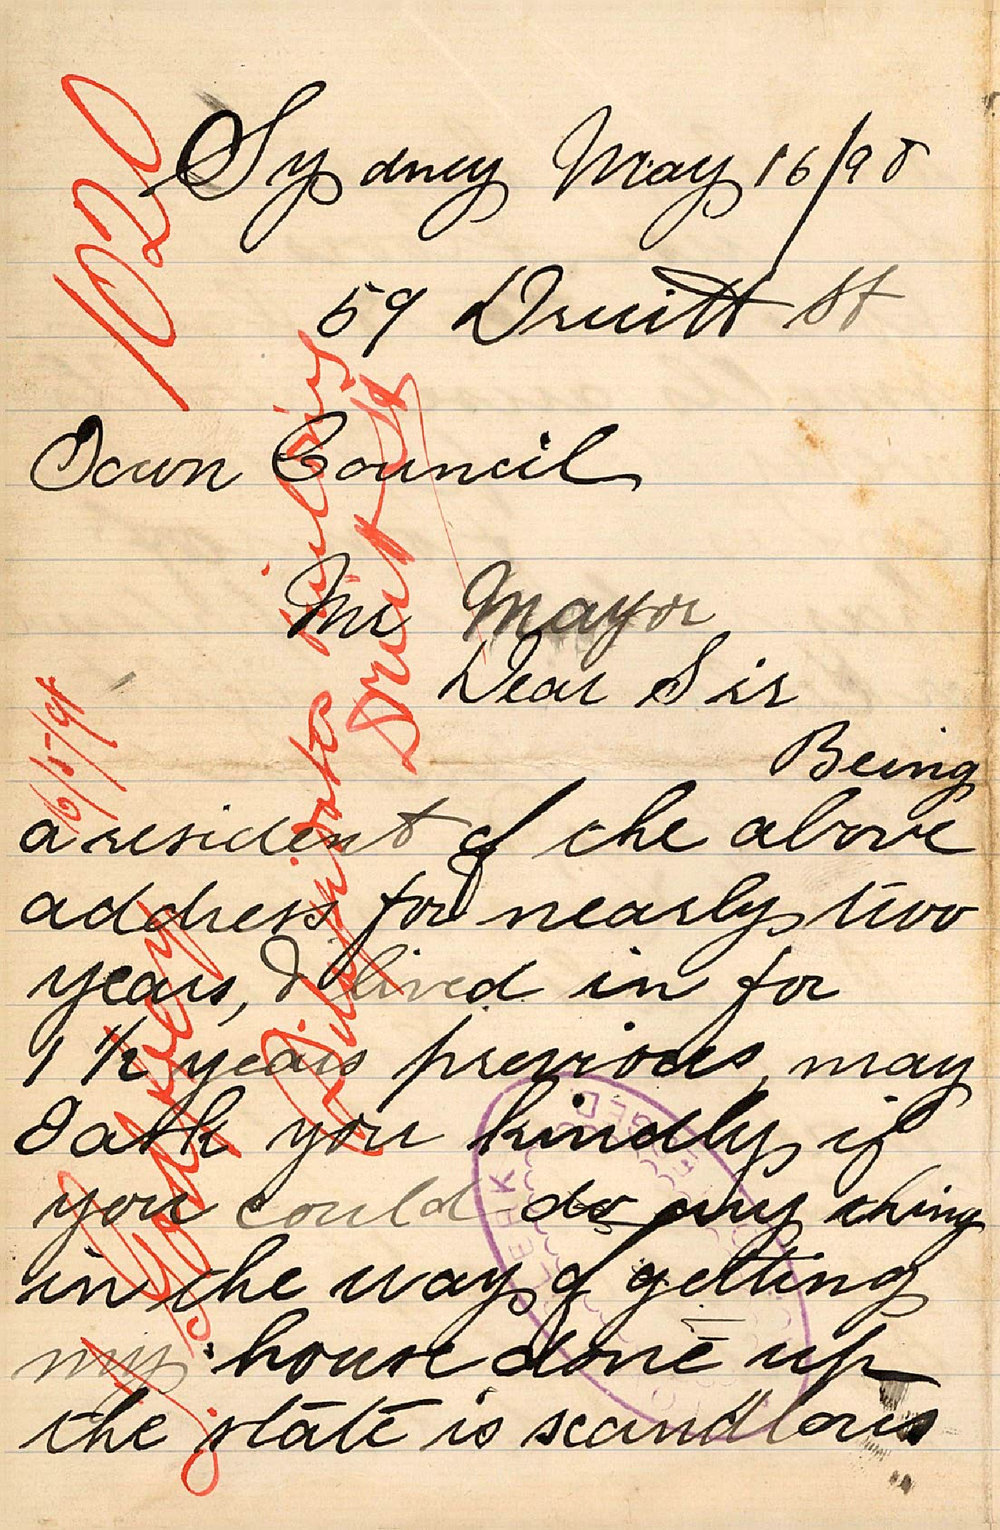 Sydney May 16/98
59 Druitt St
Town Council
Mr Mayor
Dear Sir
Being
a resident of the above
address for nearly two
years, I lived in for
1 1/2 years previous, may
I ask you kindly if
you could do any thing
in the way of getting
my house done up
the state is scandlous
1020
16/5/98
J. Godfrey
Dilapidated buildings
Druitt St
CLERK